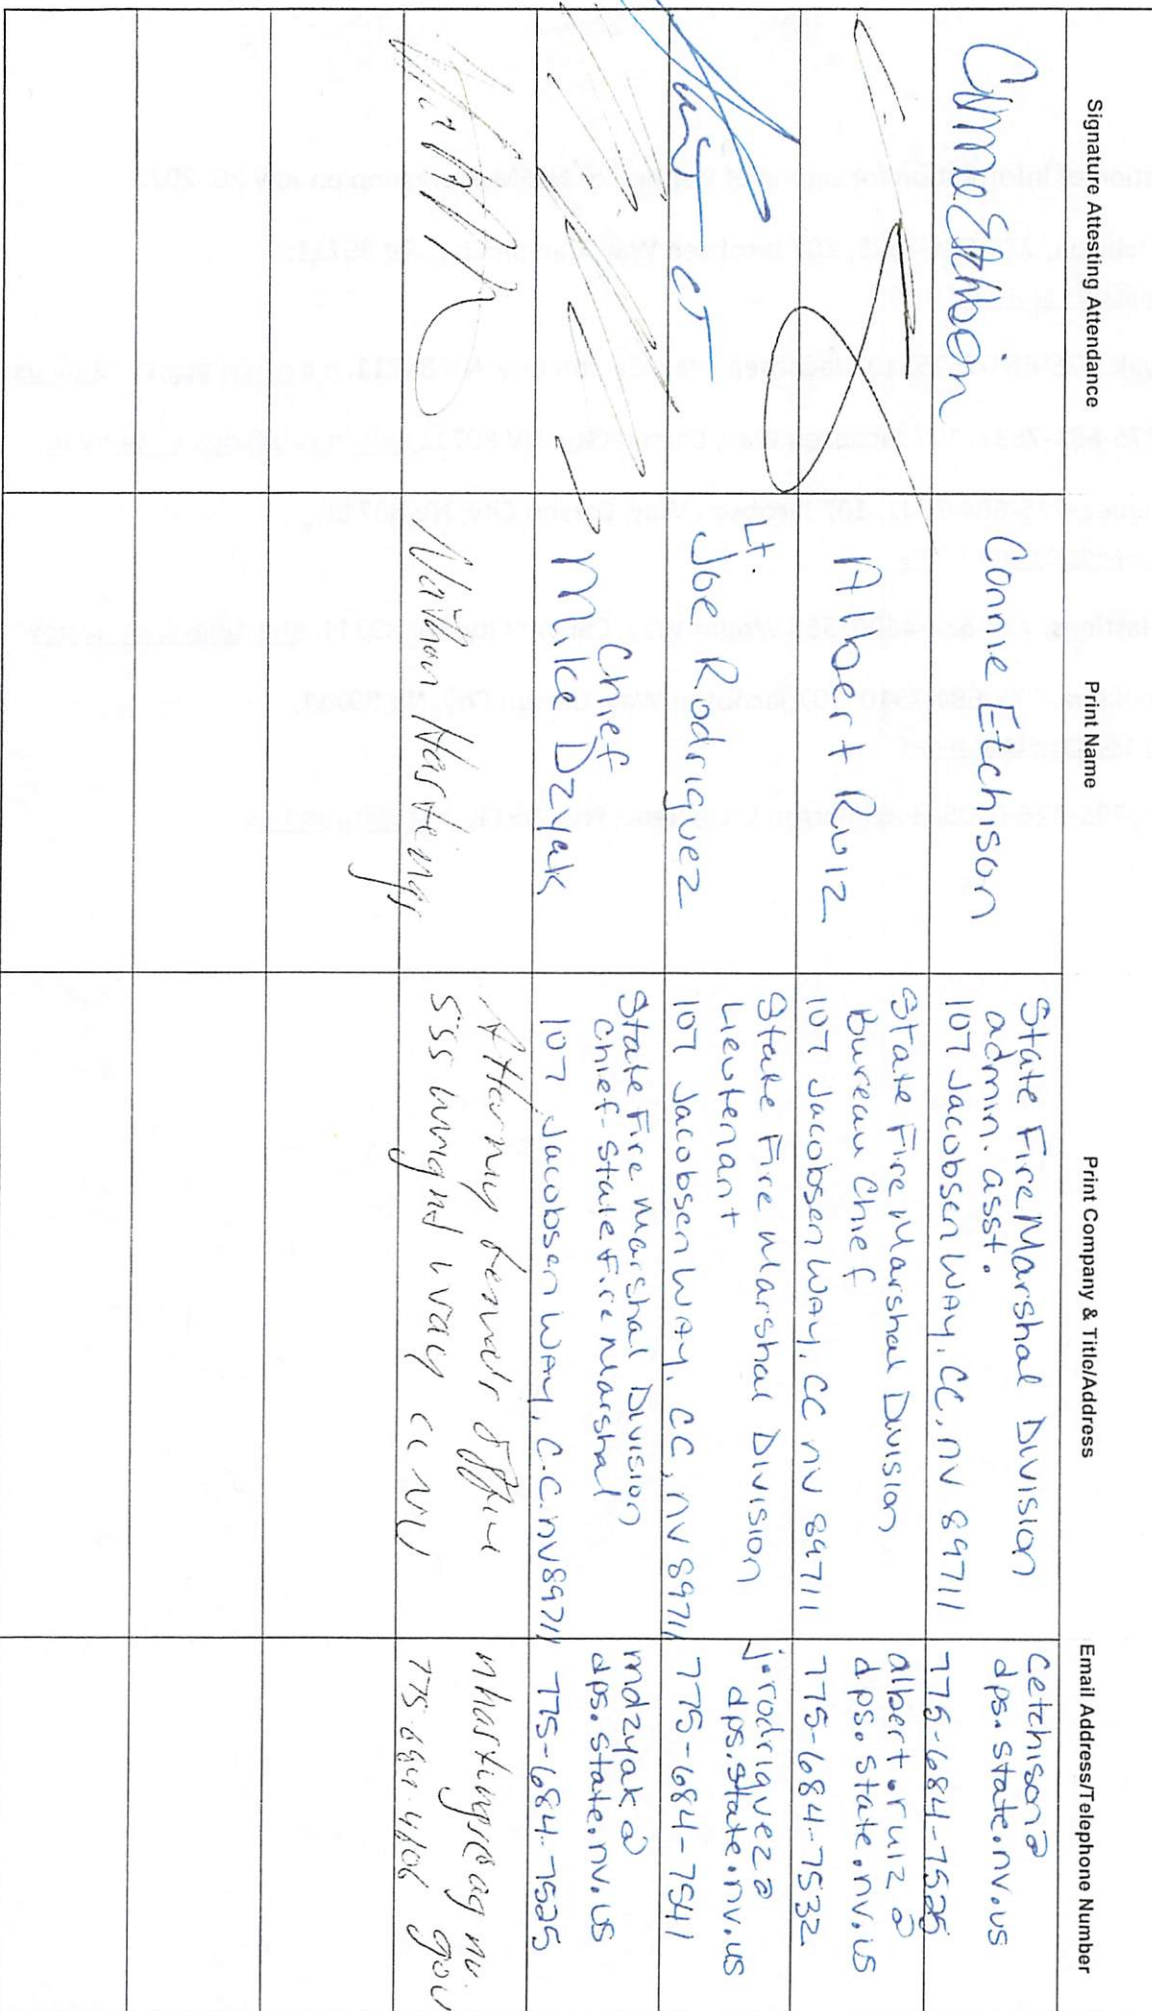 Signature Attesting Attendance
Print Name
Print Company & Title/Address
Email Address/Telephone Number
Connie Etchison
State Fire Marshal Division
admin. asst.
107 Jacobsen Way, CC, NV 89711
cetchison@
dps.state.nv.us
775-684-7525
Albert Ruiz
State Fire Marshal Division
Bureau Chief
107 Jacobsen Way, CC NV 89711
albert.ruiz@
dps.state.nv.us
775-684-7532
Lt.
Joe Rodriguez
State Fire Marshal Division
Lieutenant
107 Jacobsen Way, CC, NV 89711
j.rodriguez@
dps.state.nv.us
775-684-7541
Chief
Mike Dzyak
State Fire Marshal Division
Chief-State Fire Marshal
107 Jacobsen Way, C.C. NV 89711
mdzyak@
dps.state.nv.us
775-684-7525
Nathan Hastings
Attorney General's Office
555 Wright Way CC NV
nhastings@ag.nv.
gov